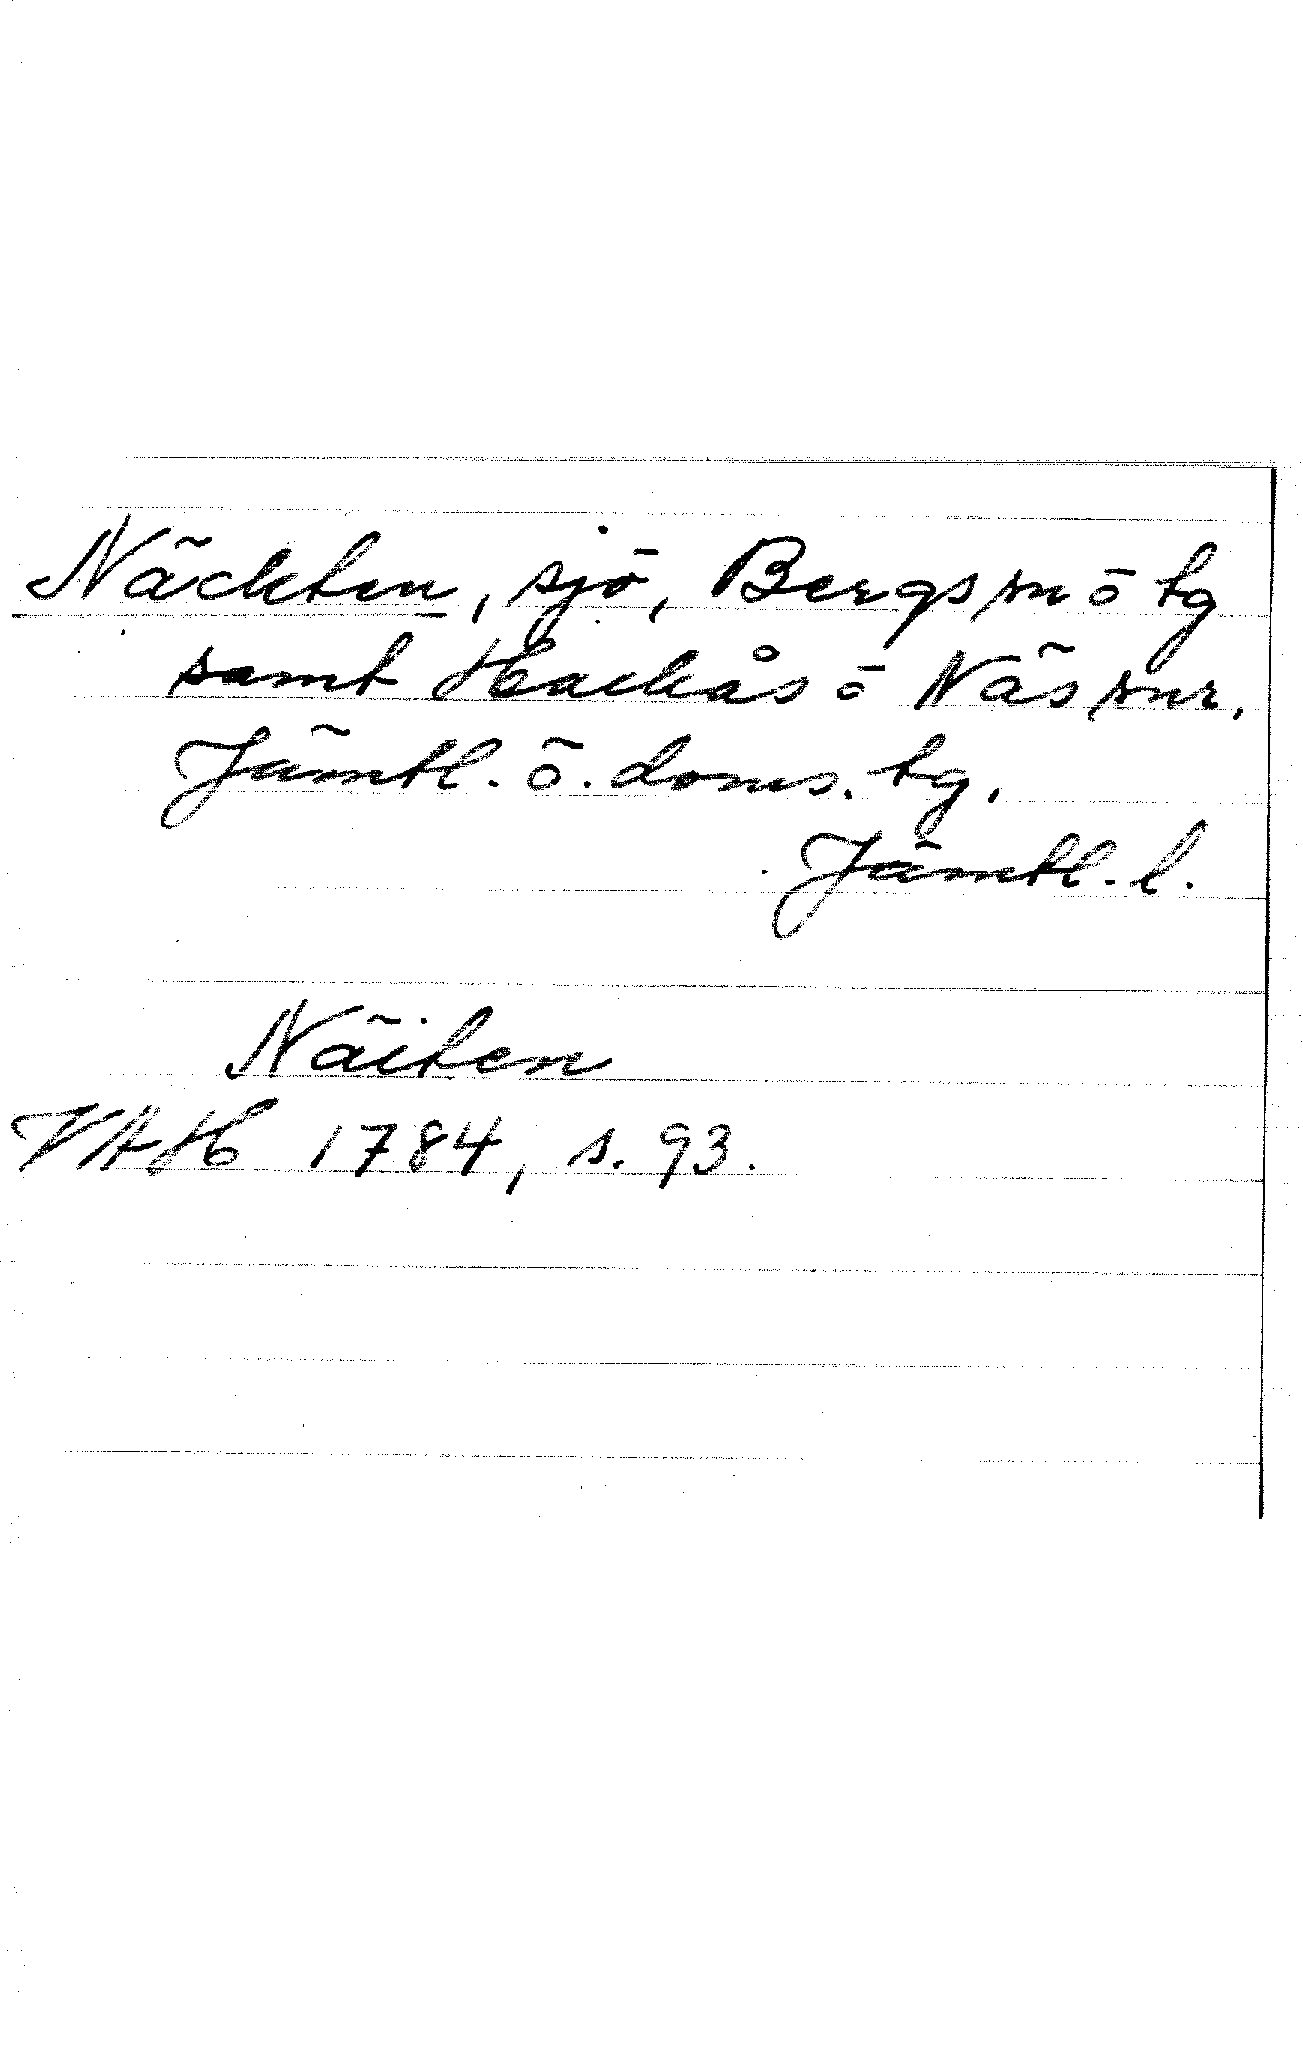 Näckten, sjö, Bergs sn ö tg
samt Hackås ö Näs snr,
Jämtl. ö. doms. tg,
Jämtl. l.
Näiten
VAH 1784, s. 93.